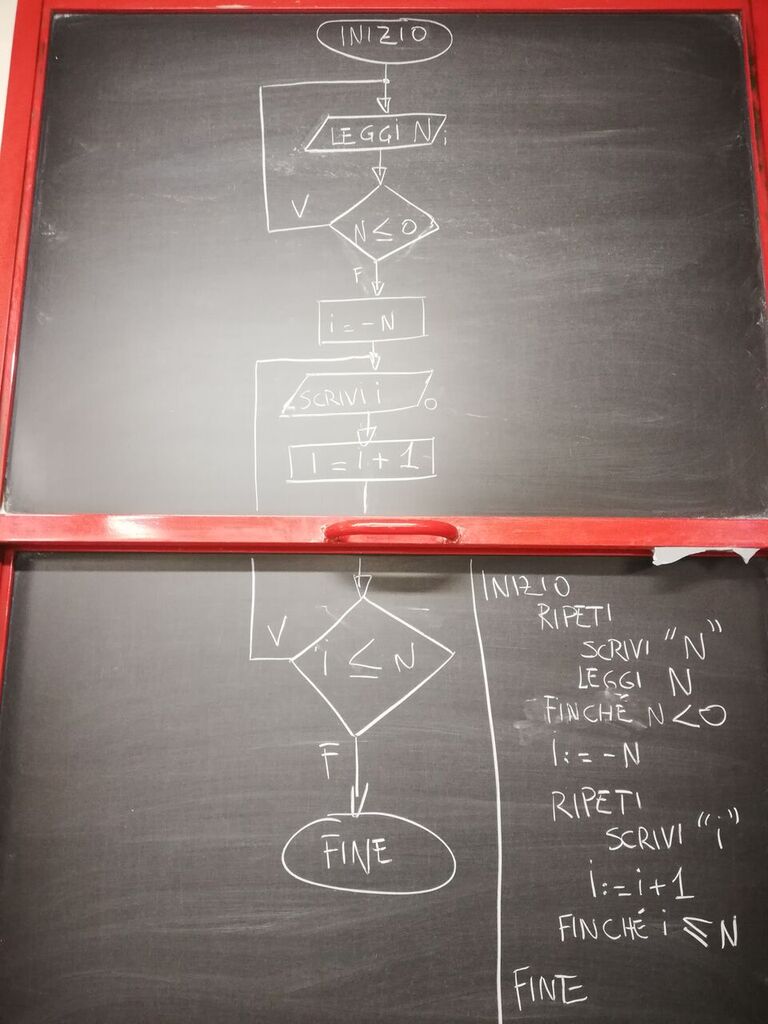 INIZIO
LEGGI N
i
V
N ≤ 0
F
i = -N
SCRIVI i
o
i = i + 1
V
i ≤ N
F
FINE
INIZIO
RIPETI
SCRIVI "N"
LEGGI N
FINCHÉ N < 0
I := -N
RIPETI
SCRIVI "i"
i := i + 1
FINCHÉ i ≤ N
FINE